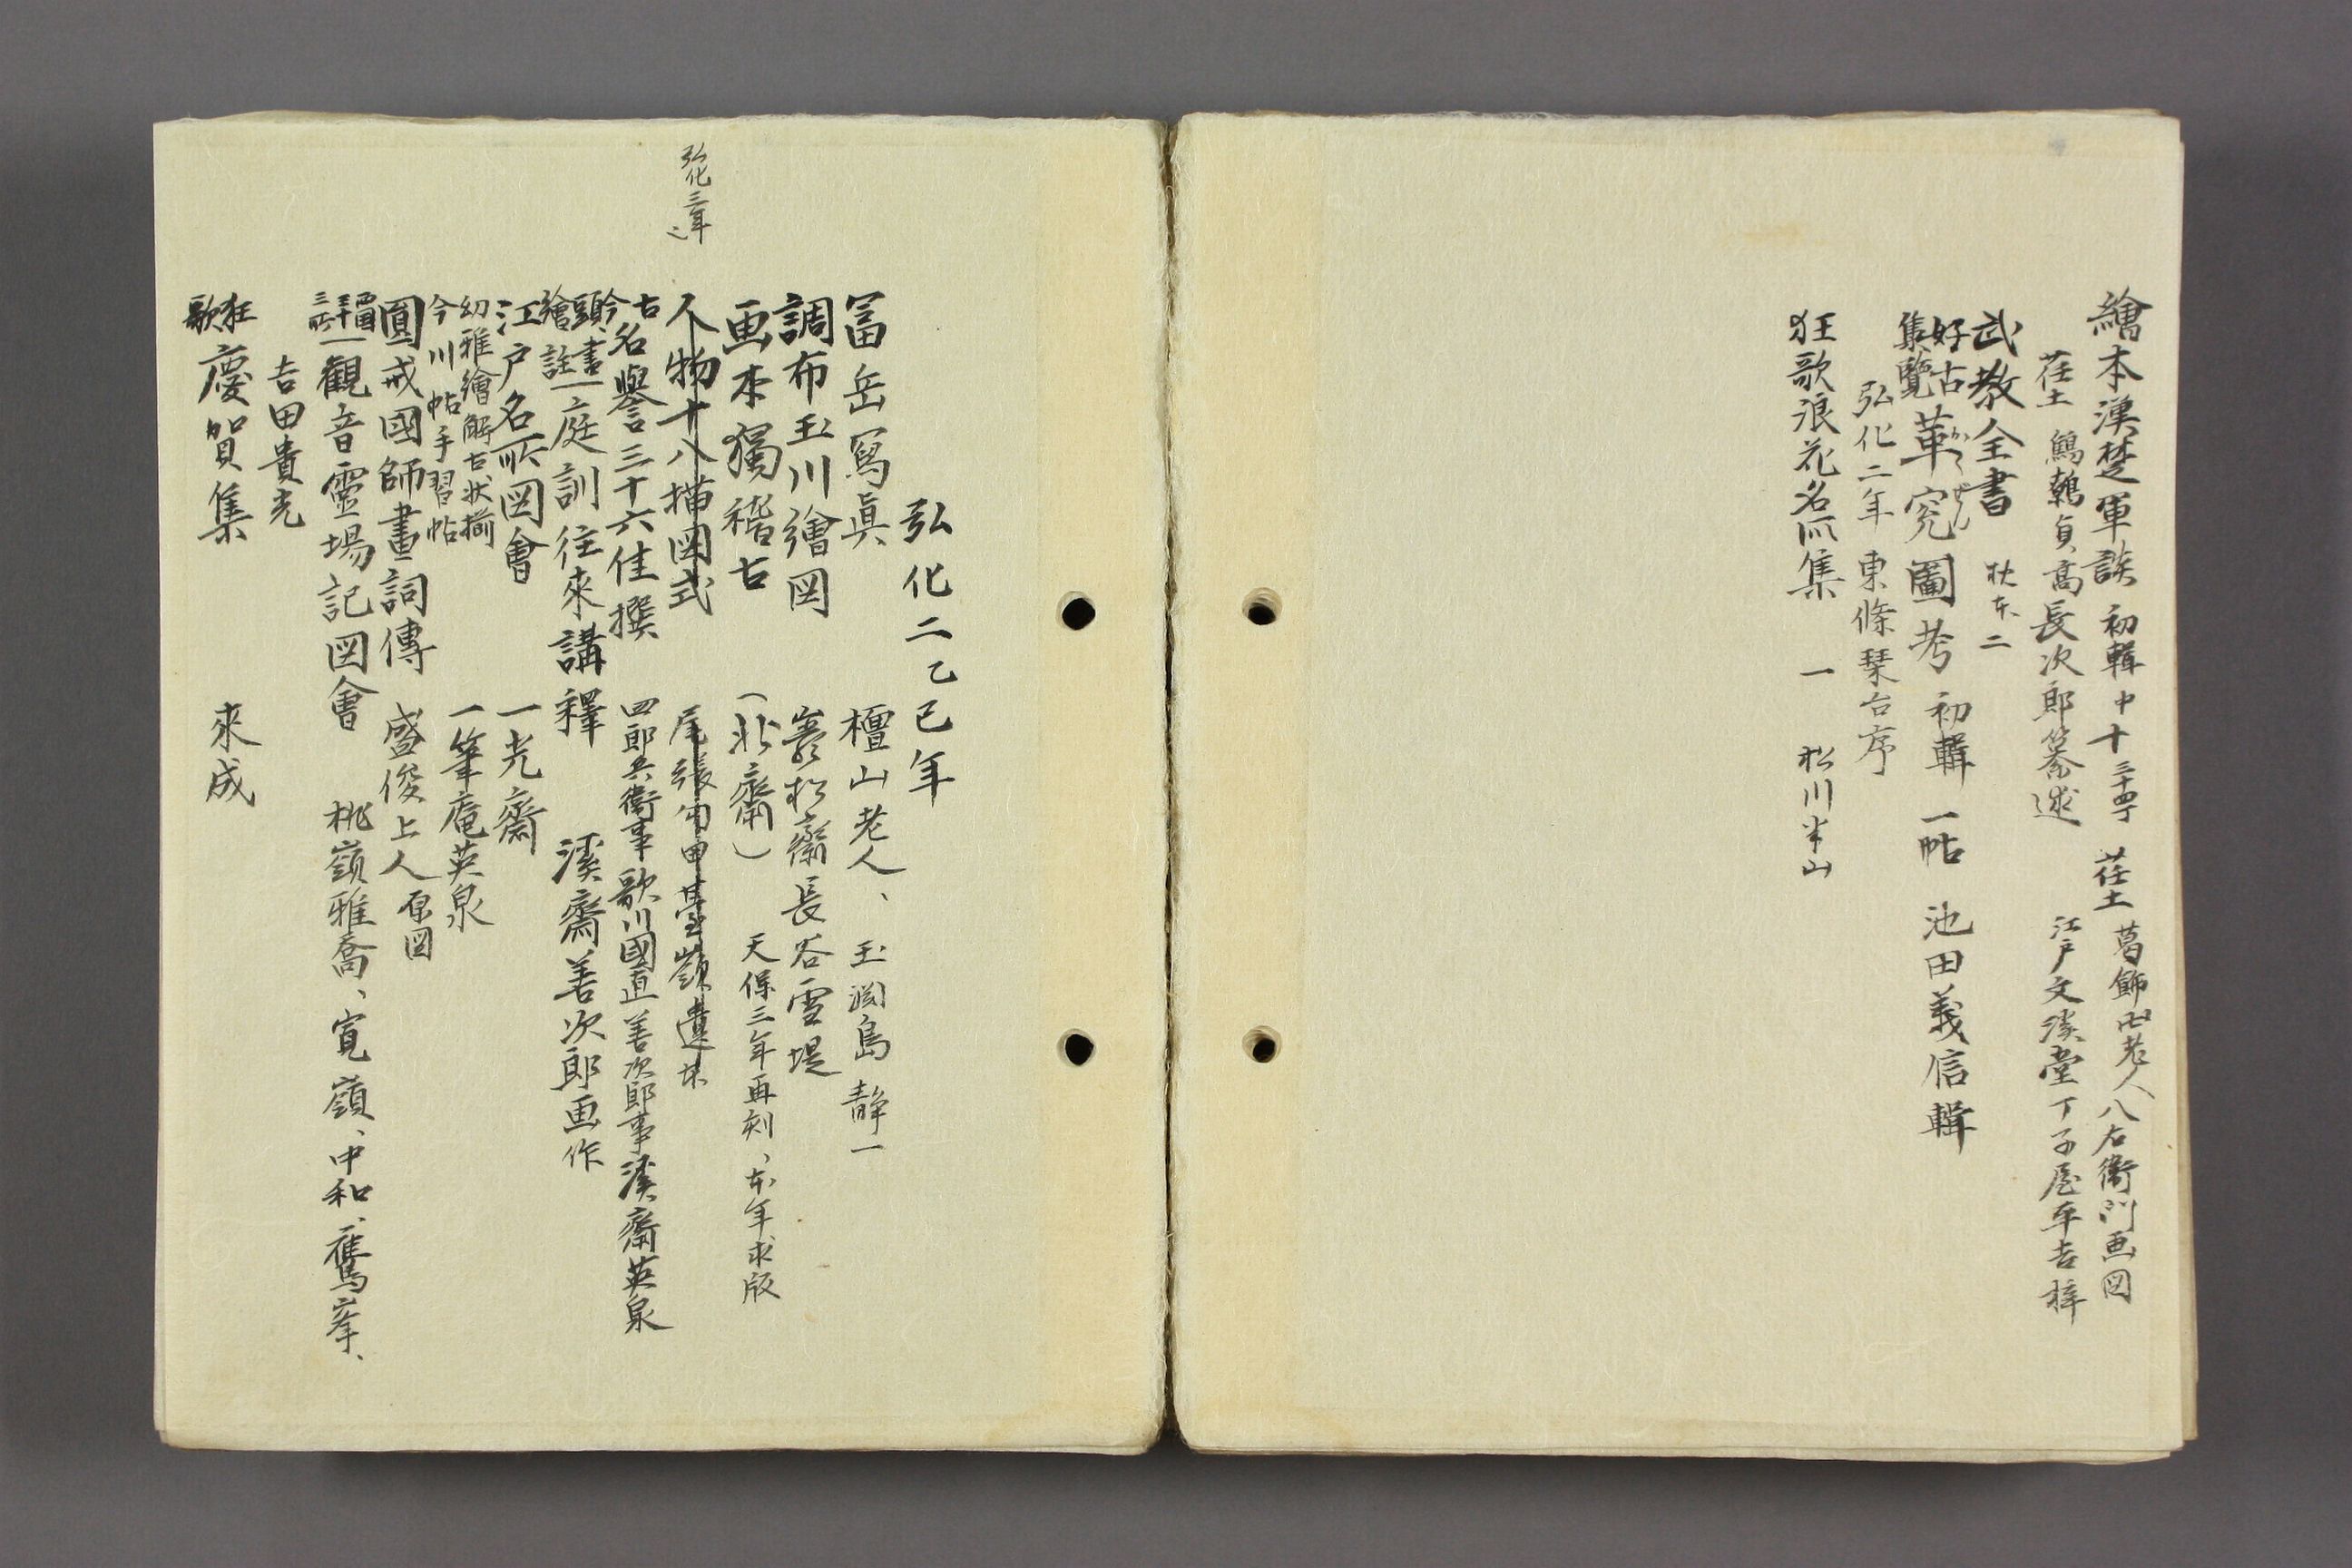 繪本漢楚軍談 初輯中十 三十四丁 荏土 葛飾卍老人八右衛門画図
荏土 鷦鷯貞高長次郎筭述 江戸文溪堂丁子屋平吉梓
武教全書 状本二
好古集覽 革究圖考 初輯 一帖 池田義信輯
弘化二年 東條琹台序
狂歌浪花名所集 一 松川半山
弘化二乙巳年
冨岳寫眞 檀山老人、玉潤島静一
調布玉川繪図 長谷雪堤
画本獨稽古 (北齋) 天保三年再刻、本年求版
弘化三年
人物十八描図式 尾張
古今名譽三十六佳撰 四郎兵衛事歌川國直 善次郎事溪齋英泉
頭書繪註 庭訓往來講釋 溪齋善次郎画作
江戸名所図會 一光齋
幼雅繪解古状揃 一筆庵英泉
今川帖手習帖
圓戒國師畫詞傳 盛俊上人 原図
西國三十三所 観音靈場記図會 桃嶺雅喬、寛嶺、中和、鳳峯、
吉田貴光
狂歌慶賀集 來成